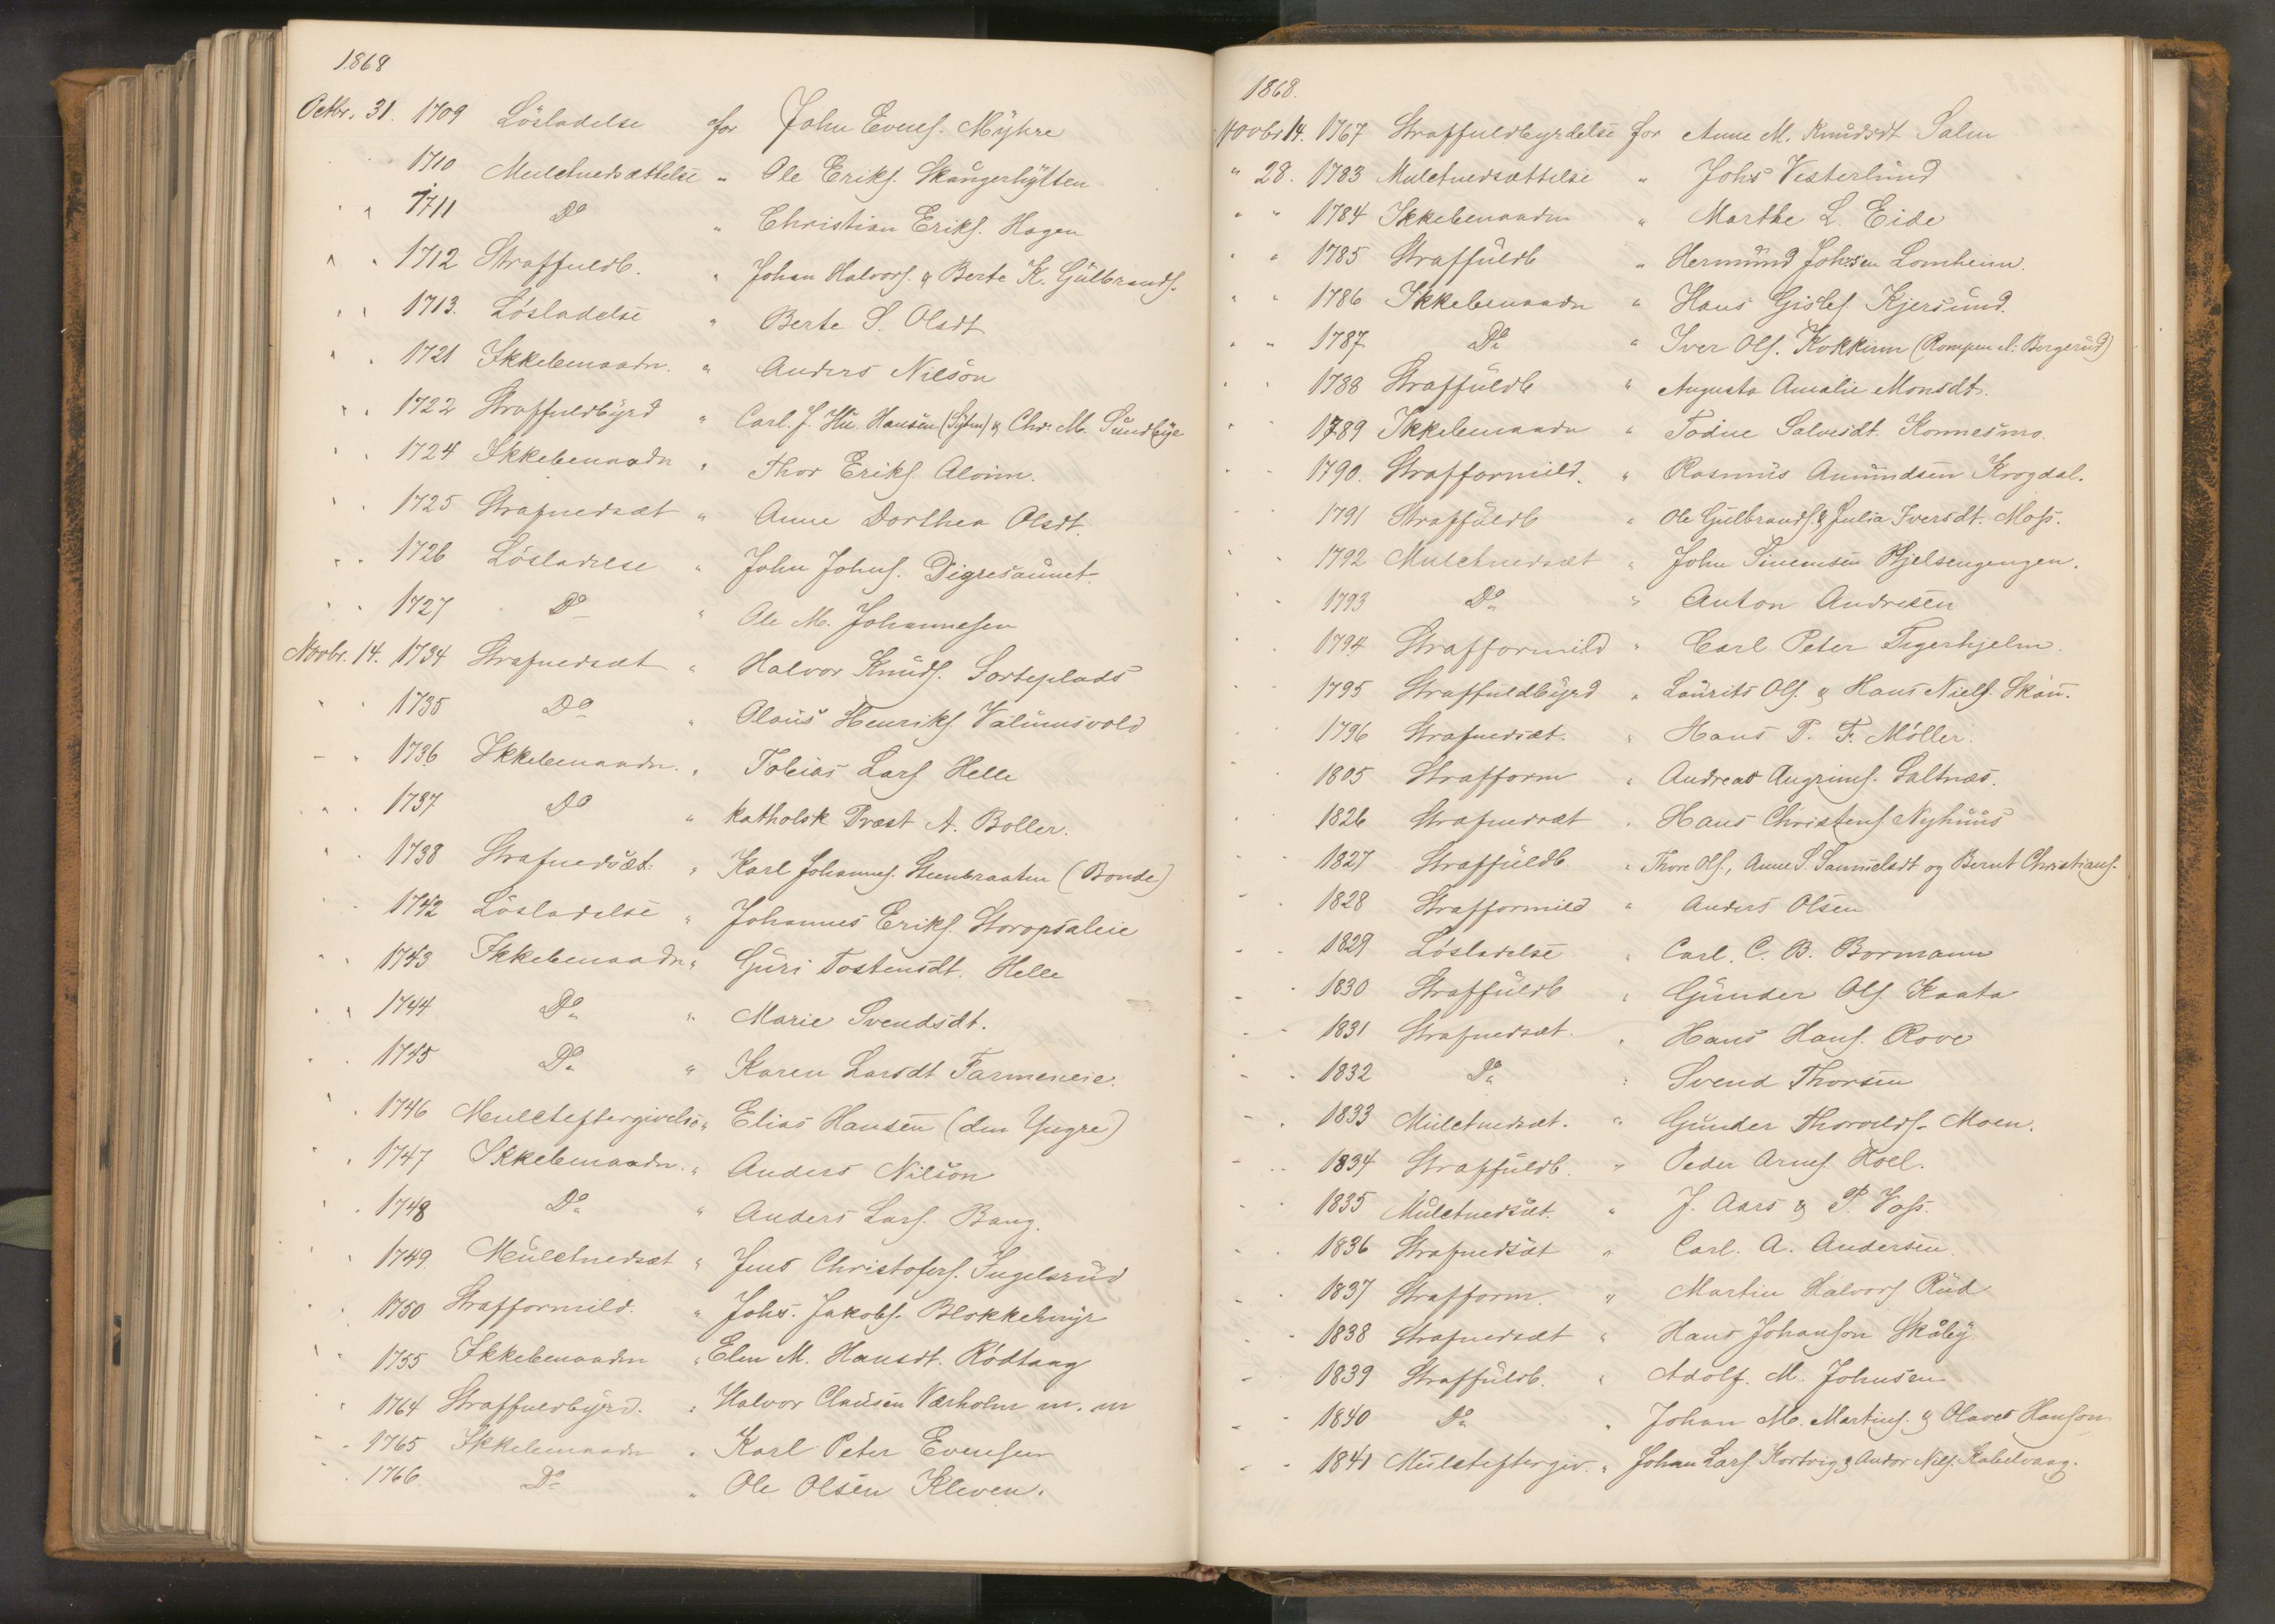 1868
Octbr. 31. 1709 Lösladelse for John Evens. Myhre
1710 Mulctnedsættelse " Ole Eriks. Skaugerhytten
" " 1711 Do " Christian Eriks. Hagen
" " 1712 Straffuldb. " Johan Halvors. & Berte K. Gulbrands.
" " 1713. Lösladelse " Berte S. Olsdt
" " 1721 Ikkebenaadn. " Anders Nilson
" " 1722 Straffuldbyrd " Carl. J. Hansen & Chr. M. Sundbye
" " 1724 Ikkebenaadn " Thor Eriks.
" " 1725 Strafnedsæt " Anne Dorthea Olsdt.
" " 1726 Lösladelse " John Johns. Digresaunet
" " 1727 Do " Ole M. Johannesen
Novbr. 14. 1734 Strafnedsæt " Halvor Knuds. Sorteplads
" " 1735 Do " Olaus Henriks Valumsvold
" " 1736 Ikkebenaadn. " Tobias Lars Helle
" " 1737 Do " katholsk Præst A. Boller.
" " 1738 Strafnedsæt. " Karl Johannes. Steenbraaten (Bonde)
" " 1742 Lösladelse " Johannes Eriks. Storopsaleie
" " 1743 Ikkebenaadn " Guri Tostensdt. Helle
" " 1744 Do " Marie Svendsdt.
" " 1745 Do " Karen Larsdt Farmeneie.
" " 1746 Mulcteftergivelse " Elias Hansen (den Yngre)
" " 1747 Ikkebenaadn. " Anders Nilson
" " 1748 Do " Anders Lars. Bang.
" " 1749. Mulctnedsæt " Jens Christofers. Ingelsrud
" " 1750 Strafformild. " Johs. Jakobs. Blokkehmyr
" " 1755 Ikkebenaadn " Elen M. Hansdt. Rödtang
" 1764 Straffuldbyrd. " Halvor Clausen Værholm m. m
" " 1765 Ikkebenaadn " Karl Peter Evensen
" 1766. Do " Ole Olsen Kleven.
1868.
Novbr 14. 1767 Straffuldbyrdelse for Anne M. Knudsdt Salm
" 28. 1783 Mulctnedsættelse " Johs Vesterlund
" " 1784 Ikkebenaadn " Marthe L. Eide
" " 1785 Straffuldb " Hermund Johsen Lomheim.
" " 1786 Ikkebenaadn " Hans Gisles Kjersund.
" " 1787 Do " Iver Ols. Kokkinn (Rompen el. Borgerud)
" " 1788 Straffuldb " Augusta Amalie Monsdt.
" " 1789 Ikkebenaadn " Todne Salvesdt. Konnesmo.
" " 1790. Strafformild. " Rasmus Amundsen Krogdal.
" " 1791 Straffuldb " Ole Gulbrands & Julia Iversdt. Moss.
" " 1792 Mulctnedsæt " John Simensen Hjelsengengen.
" " 1793 Do " Anton Andresen
" " 1794 Strafformild " Carl Peter Tigerhjelm.
" " 1795 Straffuldbyrd " Laurits Ols. & Hans Niels. Skau.
" " 1796 Strafnedsæt. " Hans P. F. Möller.
" " 1805 Strafform " Andreas Angrims. Saltnæs.
" " 1826 Strafnedsæt " Hans Christens. Nyhuus
" " 1827 Straffuldb. " Thore Ols., Anne S. Samuelsdt og Bernt Christians.
" " 1828 Strafformild " Anders Olsen
" " 1829 Lösladelse " Carl. C. B. Bormann
" " 1830 Straffuldb " Gunder Ols. Kaata
" " 1831 Strafnedsæt. " Hans Hans. Rove
" " 1832 Do " Svend Thorsen
" " 1833 Mulctnedsæt. " Gunder Thorvalds. Moen.
" " 1834 Straffuldb. " Peder Arnes. Hoel.
" " 1835 Mulctnedsæt. " J. Aars & P. Voss.
" " 1836 Strafnedsæt " Carl. A. Andersen.
" " 1837 Strafform. " Martin Halvors Rud
" " 1838 Strafnedsæt " Hans Johanson Skåby
" " 1839 Straffuldb. " Adolf. M. Johnsen
" " 1840 Do " Johan M. Martins. & Olaves Hanson
" " 1841 Mulcteftergiv. " Johan Lars Kortvig & Andor Nils. Kabelvaag.